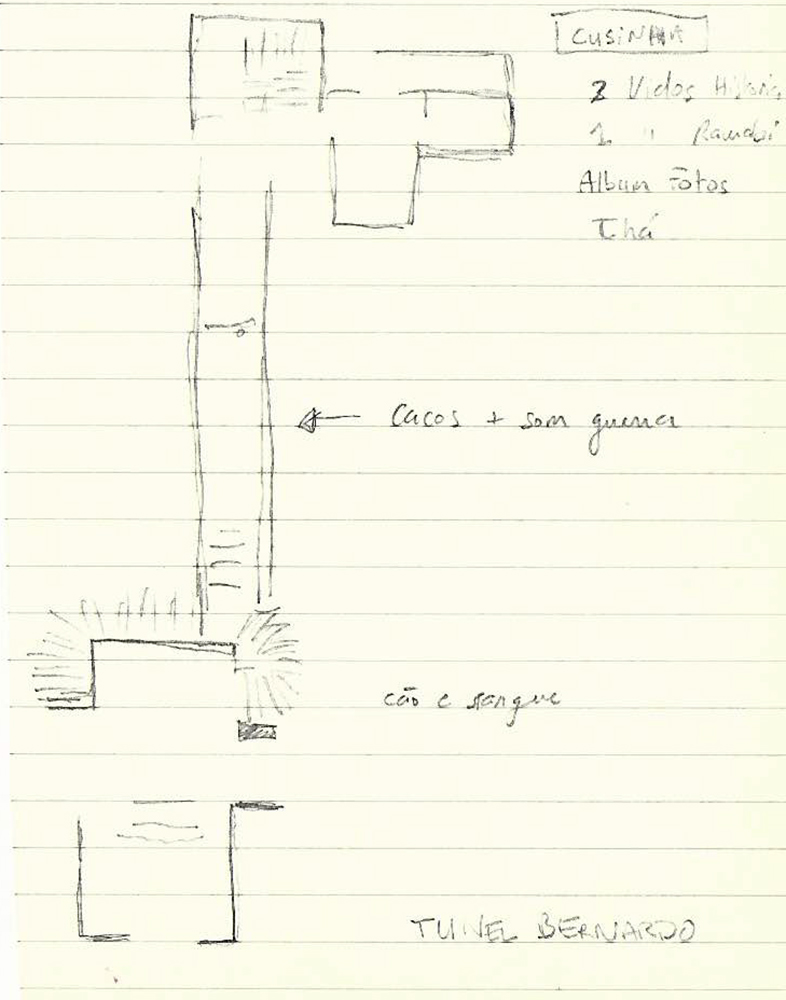 CUSINHA
2 Vidos Historia
1 "
Album Fotos
Thá
Cacos + som guerra
cão e sangue
TUNEL BERNARDO